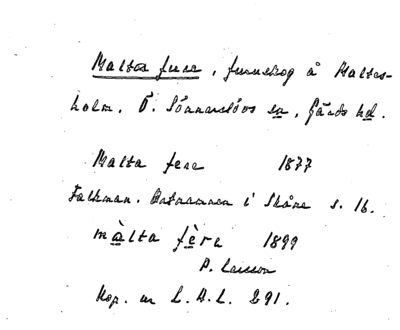 Maltes fure, furuskog å Maltes-
holm. Ö. Sönnarslövs sn, Gärds hd.
Malta fere 1877
Falkman. Ortnamnen i Skåne s. 16.
màlta fère 1899
P. Larsson
Kop. ur L.A.L. 291.